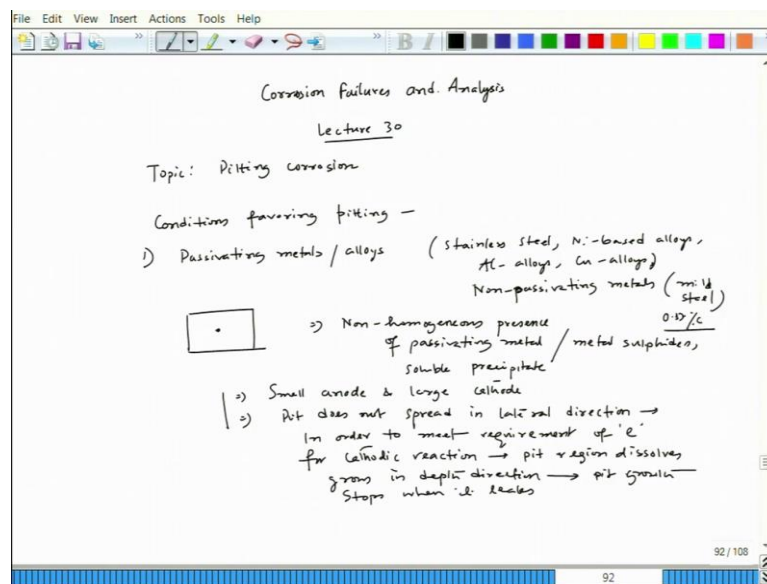 File Edit View Insert Actions Tools Help
B I
Corrosion Failures and Analysis
Lecture 30
Topic: Pitting corrosion
Conditions favoring pitting –
1) Passivating metals / alloys (Stainless steel, Ni-based alloys,
Al-alloys, Cu-alloys)
Non-passivating metals (mild
steel)
0.1% C
⇒ Non-homogeneous presence
of passivating metal / metal sulphides,
soluble precipitate
⇒ Small anode & large cathode
⇒ Pit does not spread in lateral direction →
In order to meet requirement of 'e'
for cathodic reaction → pit region dissolves
grows in depth direction → pit growth
stops when it leaks
92 / 108
92